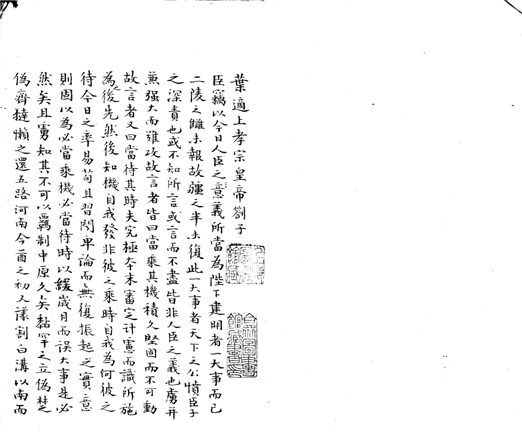 葉適上孝宗皇帝劄子
臣竊以今日人臣之義所當為陛下建明者一大事而已
二陵之讎未報故疆之半未復此一大事者天下之公憤臣子
之深責也或不知所言或言而不盡皆非人臣之義也虜并
兼强大而難攻故言者皆曰當乘其機積久堅固而不可動
故言者又曰當待其時夫究極本末審定計慮而識所施
為後先然後知機自我發非彼之乘時自我為何彼之
待今日之率易苟且習閒卑論而無復振起之實意
則固以為必當乘機必當待時以緩歲月而誤大事是必
然矣且虜知其不可以羈制中原久矣黏罕之立偽楚
偽齊撻懶之還五路河南今酋之初人議割白溝以南而